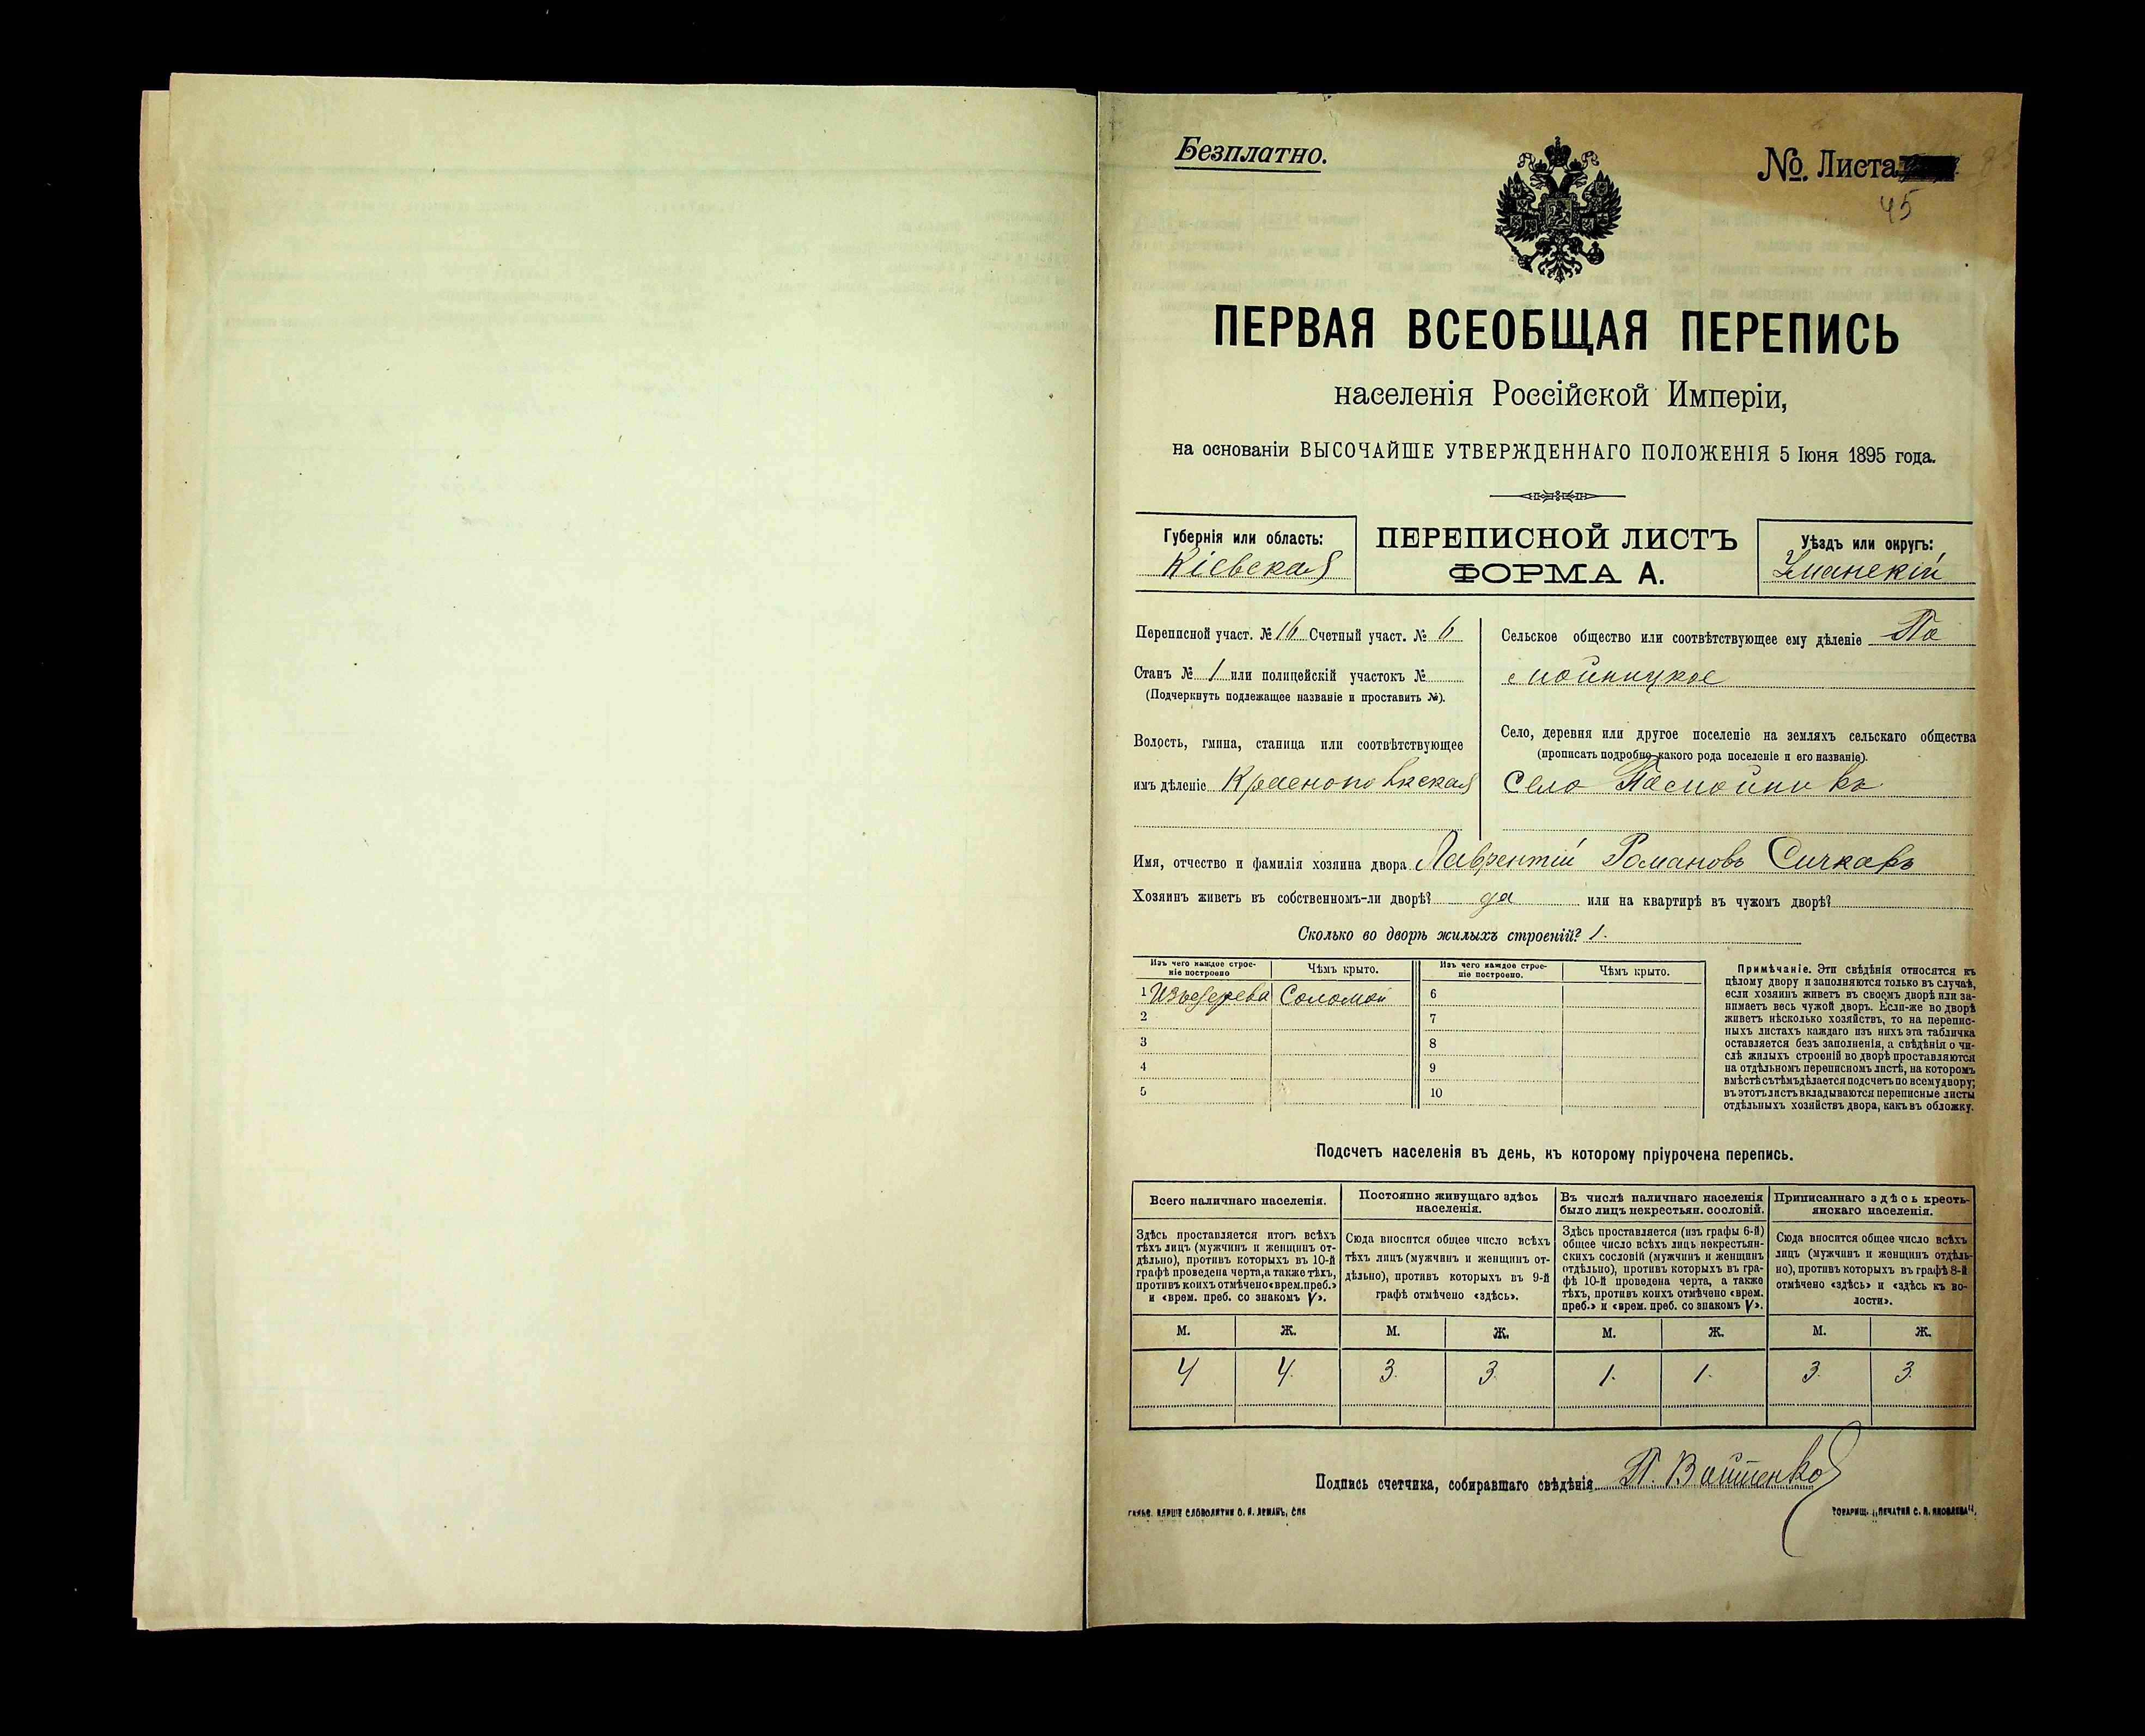 Безплатно.
№. Листа
45
ПЕРВАЯ ВСЕОБЩАЯ ПЕРЕПИСЬ
населенія Россійской Имперіи,
на основаніи ВЫСОЧАЙШЕ УТВЕРЖДЕННАГО ПОЛОЖЕНІЯ 5 Іюня 1895 года.
Губернія или область:
Кіевская
ПЕРЕПИСНОЙ ЛИСТЪ
ФОРМА А.
Уѣздъ или округъ:
Уманскій
Переписной участ. № 16 Счетный участ. № 6
Станъ № 1 или полицейскій участокъ №
(Подчеркнуть подлежащее названіе и проставить №).
Волость, гмина, станица или соотвѣтствующее
имъ дѣленіе
Сельское общество или соотвѣтствующее ему дѣленіе По
смойницкое
Село, деревня или другое поселеніе на земляхъ сельскаго общества
(прописать подробно какого рода поселеніе и его названіе).
Село
Имя, отчество и фамилія хозяина двора Лаврентій Романовъ Сичкарь
Хозяинъ живетъ въ собственномъ-ли дворѣ? да или на квартирѣ въ чужомъ дворѣ?
Сколько во дворѣ жилыхъ строеній? 1.
Изъ чего каждое строе-
ніе построено
Чѣмъ крыто.
Изъ чего каждое строе-
ніе построено.
Чѣмъ крыто.
1 Изъ дерева Соломой 6
2 7
3 8
4 9
5 10
Примѣчаніе. Эти свѣдѣнія относятся къ
цѣлому двору и заполняются только въ случаѣ,
если хозяинъ живетъ въ своемъ дворѣ или за-
нимаетъ весь чужой дворъ. Если-же во дворѣ
живетъ нѣсколько хозяйствъ, то на перепис-
ныхъ листахъ каждаго изъ нихъ эта табличка
оставляется безъ заполненія, а свѣдѣнія о чи-
слѣ жилыхъ строеній во дворѣ проставляются
на отдѣльномъ переписномъ листѣ, на которомъ
вмѣстѣ съ тѣмъ дѣлается подсчетъ по всему двору;
въ этотъ листъ вкладываются переписные листы
отдѣльныхъ хозяйствъ двора, какъ въ обложку.
Подсчетъ населенія въ день, къ которому пріурочена перепись.
Всего наличнаго населенія.
Здѣсь проставляется итогъ всѣхъ
тѣхъ лицъ (мужчинъ и женщинъ от-
дѣльно), противъ которыхъ въ 10-й
графѣ проведена черта, а также тѣхъ,
противъ коихъ отмѣчено «врем. преб.»
и «врем. преб. со знакомъ V».
Постоянно живущаго здѣсь
населенія.
Сюда вносится общее число всѣхъ
тѣхъ лицъ (мужчинъ и женщинъ от-
дѣльно), противъ которыхъ въ 9-й
графѣ отмѣчено «здѣсь».
Въ числѣ наличнаго населенія
было лицъ некрестьян. сословій.
Здѣсь проставляется (изъ графы 6-й)
общее число всѣхъ лицъ некрестьян-
скихъ сословій (мужчинъ и женщинъ
отдѣльно), противъ которыхъ въ гра-
фѣ 10-й проведена черта, а также
тѣхъ, противъ коихъ отмѣчено «врем.
преб.» и «врем. преб. со знакомъ V».
Приписаннаго здѣсь кресть-
янскаго населенія.
Сюда вносится общее число всѣхъ
лицъ (мужчинъ и женщинъ отдѣль-
но), противъ которыхъ въ графѣ 8-й
отмѣчено «здѣсь» и «здѣсь къ во-
лости».
М. Ж. М. Ж. М. Ж. М. Ж.
4 4. 3. 3. 1. 1. 3. 3.
Подпись счетчика, собиравшаго свѣдѣнія
СЛОВОЛИТНИ О. И. ЛЕМАНЪ, СПБ
ТОВАРИЩ. „ПЕЧАТНЯ С. П. ЯКОВЛЕВА“.